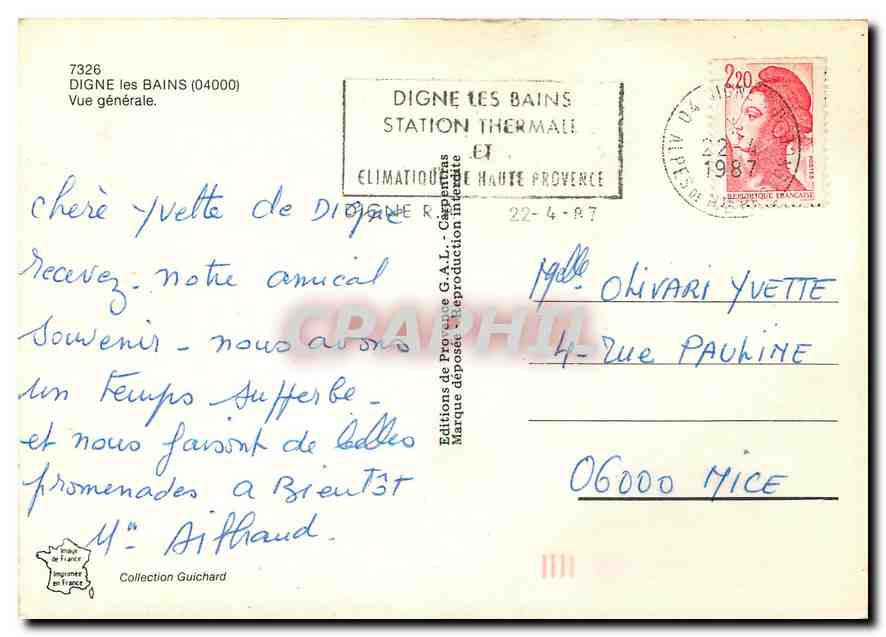 7326
DIGNE les BAINS (04000)
Vue générale.
DIGNE LES BAINS
STATION THERMALE
ET
CLIMATIQUE DE HAUTE PROVENCE
DIGNE R.P. 22-4-87
2,20
REPUBLIQUE FRANÇAISE
POSTES
1987
chère Yvette de Digne
recevez - notre amical
souvenir - nous avons
un temps sufferbe -
et nous faisont de belles
promenades a Bientôt
Editions de Provence G.A.L. - Carpentras
Marque déposée - Reproduction interdite
Melle OLIVARI YVETTE
4 - rue PAULINE
06000 NICE
Image
de France
Imprimée
en France
Collection Guichard
CPAPHIL